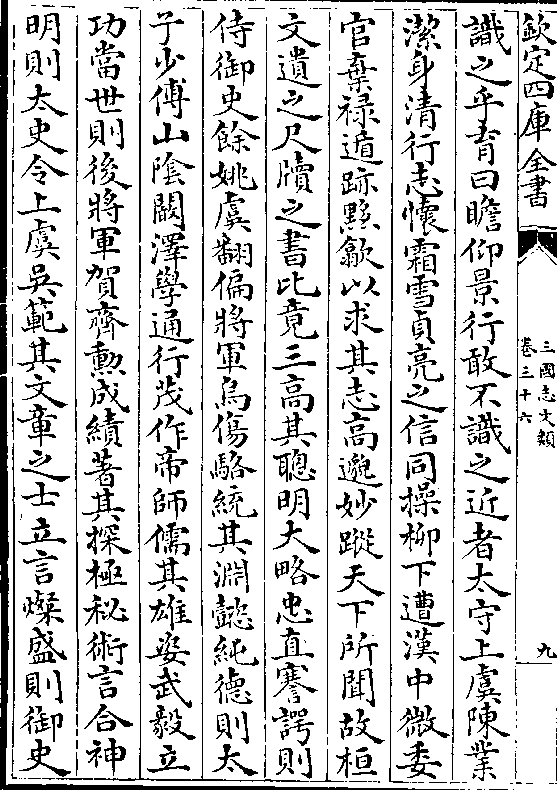 欽定四庫全書
三國志文類
卷三十六
九
識之乎育曰瞻仰景行敢不識之近者太守上虞陳業
潔身清行志懷霜雪貞亮之信同操柳下遭漢中微委
官棄祿遁跡黟歙以求其志高邈妙蹤天下所聞故桓
文遺之尺牘之書比竟三高其聰明大略忠直謇諤則
侍御史餘姚虞翻偏將軍烏傷駱統其淵懿純德則太
子少傅山陰闞澤學通行茂作帝師儒其雄姿武毅立
功當世則後將軍賀齊勲成績著其探極秘術言合神
明則太史令上虞吳範其文章之士立言燦盛則御史